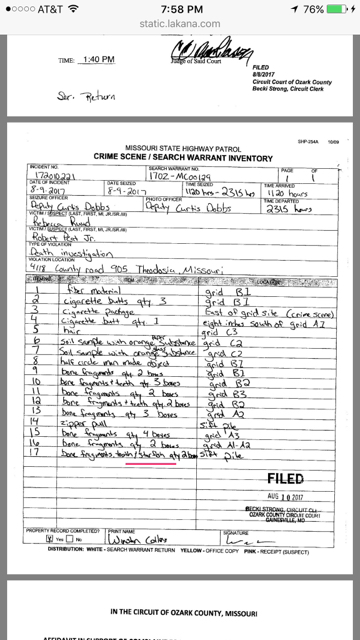 AT&T 7:58 PM 76%
static.lakana.com
TIME: 1:40 PM
Judge of Said Court
FILED
8/8/2017
Circuit Court of Ozark County
Becki Strong, Circuit Clerk
Return
SHP-294A 10/09
MISSOURI STATE HIGHWAY PATROL
CRIME SCENE / SEARCH WARRANT INVENTORY
INCIDENT NO. SEARCH WARRANT NO. PAGE OF
170210221 1702-MC00129 1 1
DATE OF INCIDENT DATE SEIZED TIME SEIZED TIME ARRIVED
8-9-2017 8-9-2017 1120 hrs-2315 hrs 1120 hours
SEIZURE OFFICER PHOTO OFFICER TIME DEPARTED
Deputy Curtis Dobbs Deputy Curtis Dobbs 2315 hours
VICTIM / SUSPECT (LAST, FIRST, MI, JR/SR/III)
Rebecca
VICTIM / SUSPECT (LAST, FIRST, MI, JR/SR/III)
Robert Peat Jr.
TYPE OF VIOLATION
Death investigation
VIOLATION LOCATION
County road 905 Theodosia, Missouri
ITEM LOCATION
1 fiber material grid B1
2 cigarette butts qty. 3 grid B1
3 cigarette package East of grid site (crime scene)
4 cigarette butt qty. 1 eight inches south of grid A1
5 hair grid C3
6 Soil sample with orange substance grid C2
7 Soil sample with orange substance grid C2
8 half circle man made object grid B1
9 bone fragments qty. 2 boxes grid B1
10 bone fragments + teeth qty. 3 boxes grid B2
11 bone fragments qty. 2 boxes grid B3
12 bone fragments + teeth qty. 2 boxes grid B2
13 bone fragments qty. 3 boxes grid A2
14 zipper pull sift pile
15 bone fragments qty. 4 boxes grid A3
16 bone fragments qty. 2 boxes grid A1-A2
17 bone fragments teeth qty 2 boxes sift pile
FILED
AUG 10 2017
BECKI STRONG, CIRCUIT CLERK
OZARK COUNTY CIRCUIT COURT
GAINESVILLE, MO
PROPERTY RECORD COMPLETED? PRINT NAME SIGNATURE
Yes No Winston Collins
DISTRIBUTION: WHITE - SEARCH WARRANT RETURN YELLOW - OFFICE COPY PINK - RECEIPT (SUSPECT)
IN THE CIRCUIT OF OZARK COUNTY, MISSOURI